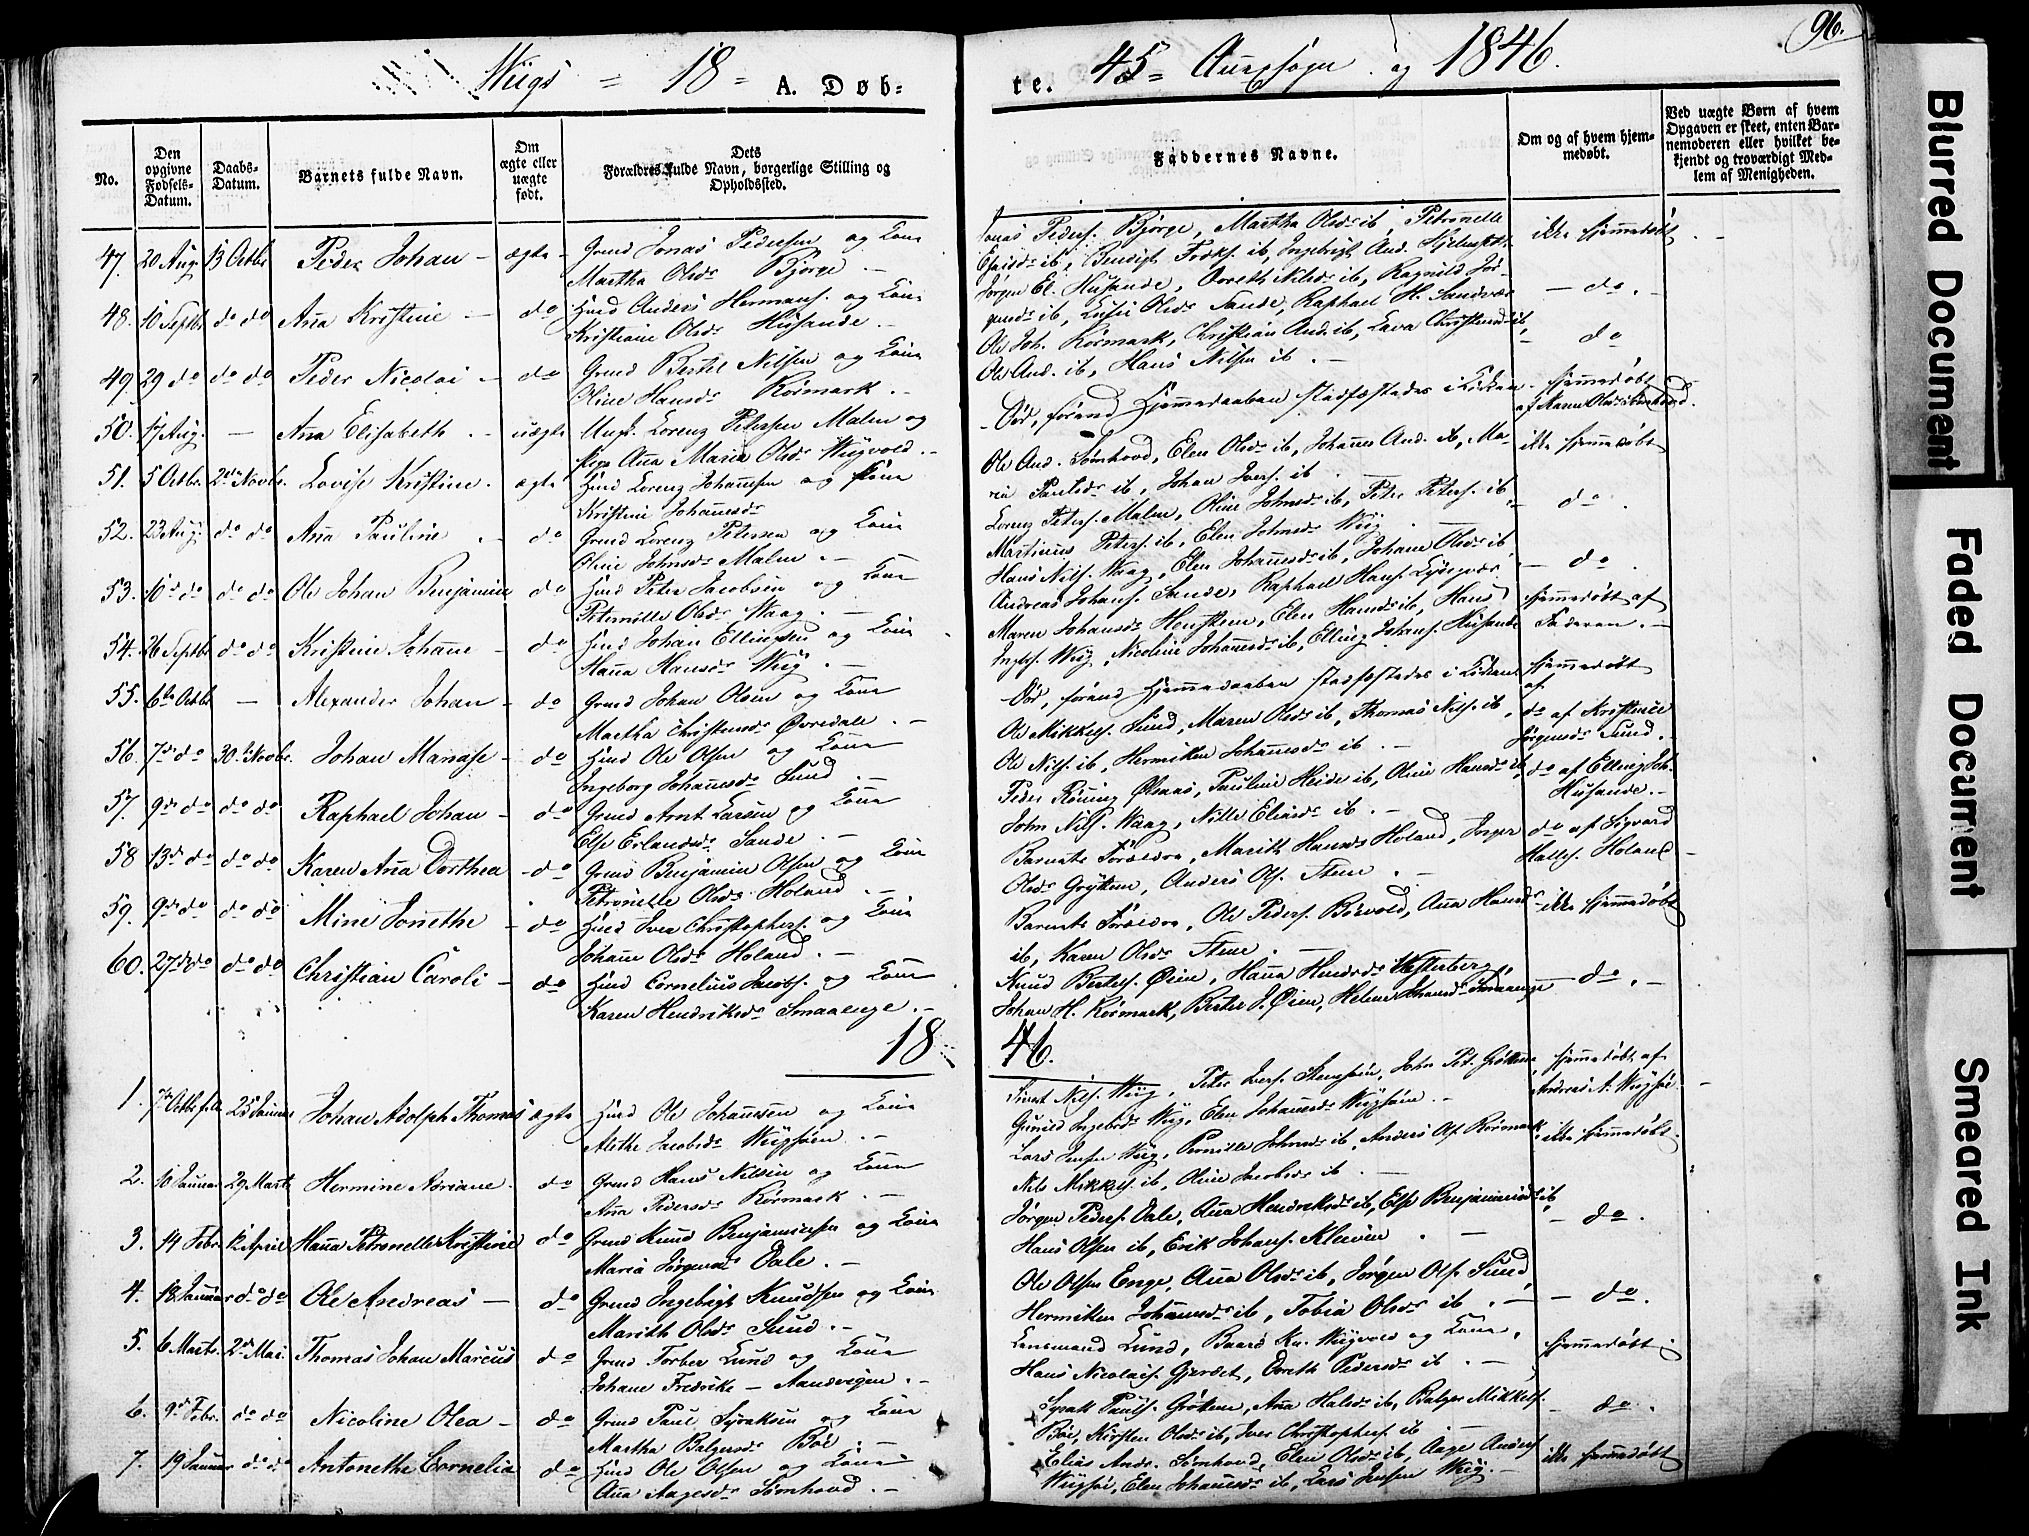 Wiigs = 18 = A. Døb=
te. 45= Auresogn og 1846.
96.
No.
Den opgivne Fødsels-Datum.
Daabs-Datum.
Barnets fulde Navn.
Om ægte eller uægte født.
Dets Forældres fulde Navn, borgerlige Stilling og Opholdssted.
Faddernes Navne.
Om og af hvem hjem-medøbt.
Ved uægte Børn af hvem Opgaven er skeet, enten Bar-nemoderen eller hvilket be-kjendt og troværdigt Med-lem af Menigheden.
47. 20 Aug. 13 Octbr Peder Johan - ægte - Grmd Jonas Pedersen og Kone
Martha Olsdr Bjørge. -
Jonas Peders. Bjørge, Martha Olsdr ib, Petronelle
ikke hjemmedøbt
48. 10 Septbr do do Aña Kristine - do Hmd Anders Hermans. og Kone
Kristiane Olsdr Husande. -
Jørgen El. Husande, Doreth Nilsdr ib, Ragnild Jør-
gensdr ib, Lusie Olsdr Sande, Raphael H. Sandvær
- do. -
49. 29 do do do Peder Nicolai - do Grmd Bertel Nilsen og Kone
Oline Hansdr Rørmark. -
Ole Joh. Rørmark, Christian And. ib, Lava Christensdr ib,
Ole And. ib, Hans Nilsen ib. -
- do
50. 17 Aug. - Aña Elisabeth. - uægte Ungk. Lorenz Petersen Malm og
Pige Aña Maria Olsdr Wiigvold. -
- Død, førend Hjemmedaaben stadfæstedes i Kirken -
hjemmedøbt
af Maren Olsdr
51. 5 Octbr. 2den Novbr. Lovise Kristine. ægte Hmd Lorenz Johañsen og Kone
Kristine Johañesdr
Ole And. Sømhovd, Elen Olsdr ib, Johañes And. ib, Ma-
ria Paulsdr ib, Johan Ivers. ib
ikke hjemmedøbt
52. 23 Aug. do do Aña Pauline. - do Grmd Lorenz Petersen og Kone
Oline Johnsdr Malm. -
Lorenz Peters. Malm, Oline Johnsdr ib, Peter Peters. ib,
Martinus Peters. ib, Elen Johnsdr Wiig
- do.
53. 10de do do do Ole Johan Benjamin do Hmd Peter Jacobsen og Kone
Petronille Olsdr Waag. -
Hans Nils. Waag, Elen Johañesdr ib, Johane Olsdr ib,
Andreas Johans. Sande, Raphael Hans.
- do.
54. 26 Septbr do do Kristine Johañe - do Hmd Johan Ellingsen og Kone
Haña Hansdr Wiig. -
Maren Johansdr Henstein, Elen Hansdr ib, Hans
Wiig, Nicoline Johañesdr ib, Elling Johans. Husande
hjemmedøbt af
Faderen. -
55. 6te Octbr - Alexander Johan - do Grmd Johan Olsen og Kone
Martha Christensdr Øvredale. -
- Død, førend Hjemmedaaben stadfæstedes i Kirken
hjemmedøbt
af
56. 7de do 30te Novbr. Johan Manase - do Hmd Ole Olsen og Kone
Ingeborg Johañesdr Sund. -
Ole Mikkels. Sund, Maren Olsdr ib, Thomas Nils. ib,
Ole Nils. ib, Hermiken Johañesdr ib. -
do af Kristence
Jørgensdr Sund. -
57. 9de do do do Raphael Johan - do Grmd Arnt Larsen og Kone
Else Erlandsdr Sande. -
Peder Røning Øksaas, Pauline Heide ib, Oline Hansdr ib,
John Nils. Waag, Nille Eliasdr ib. -
do af Elling Joh.
Husande. -
58 13de do do do Karen Aña Dorthea - do Grmd Benjamin Olsen og Kone
Petronille Olsdr Holand. -
Barnets Forældre, Marith Hansdr Holand, Inger
Olsdr Gryttem, Anders Ols. Stene. -
do af Sigvard
Halles. Holand
59. 9de do do do Mine Jonethe - do Hmd Iver Christophers. og Kone
Johañe Olsdr Holand. -
Barnets Forældre, Ole Peders. Børvold, Aña Hansdr
ib, Karen Olsdr Stene. -
ikke hjemmedøbt
60. 27de do do do Christian Caroli - do Hmd Cornelius Jacobs. og Kone
Karen Hendriksdr Smaaenge. -
Knud Bertels. Øien, Haña Hendrdr Wæsterberg,
Johan H. Rørmark, Bertel J. Øien, Helene Johansdr Smaaenge
- do. -
1846.
1. 7de Octbr f.A. 25 Januar Johan Adolph Thomas ægte Hmd Ole Johañesen og Kone
Alethe Jacobsdr Wiigsøen. -
Sivert Nils. Wiig, Peter Ivers. Stensøen, John Ped. Grøtten,
Gunild Ingebrdr Wiig, Elen Johañesdr Wiigsøen. -
hjemmedøbt af
Andreas A. Wiigsøe.
2. 10 Januar 29 Marts Hermine Adriane. do Grmd Hans Nilsen og Kone
Aña Pedersdr Rørmark. -
Lars Jensen Wiig, Pernille Johnsdr ib, Anders Ols. Rørmark,
Nils Mikkels. ib, Oline Jacobsdr ib. -
ikke hjemmedøbt.
3. 14 Febr. 12 April Haña Petronelle Kristine do Grmd Knud Benjaminsen og Kone
Maria Jørgensdr Dale. -
Jørgen Peders. Dale, Aña Hendriksdr ib, Else Benjaminsdr ib,
Hans Olsen ib, Erik Johans. Kleiven. -
- do.
4. 18 Januar do do Ole Andreas - do Grmd Ingebrigt Knudsen og Kone
Marith Olsdr Sund. -
Ole Olsen Enge, Aña Olsdr ib, Jørgen Ols. Sund,
Hermiken Johañesdr ib, Tobia Olsdr ib. -
- do.
5. 6 Marts. 2den Mai. Thomas Johan Marcus do Grmd Torber Lund og Kone
Johane Fredrike - Aandvigen. -
Lensmand Lund, Baard Kn. Wiigvold og Kone,
Hans Nicolais. Gjerdet, Dorth Pedersdr ib. -
hjemmedøbt
6. 9de Febr. do do Nicoline Olea - do Grmd Paul Syraksen og Kone
Martha Balgersdr Bøe. -
Syrak Pauls. Grøtten, Aña Halsdr ib, Balger Mikkels.
Bøe, Kirsten Olsdr ib, Iver Christophers. ib
- do.
7. 19 Januar do do Antonethe Cornelia do Hmd Ole Olsen og Kone
Aña Aagesdr Sømhovd. -
Elias Ands. Sømhovd, Elen Olsdr ib, Aage Anders.
Wiigsøe, Elen Johañesdr ib, Lars Jensen Wiig. -
ikke hjemmedøbt
Blurred Document
Faded Document
Smeared Ink